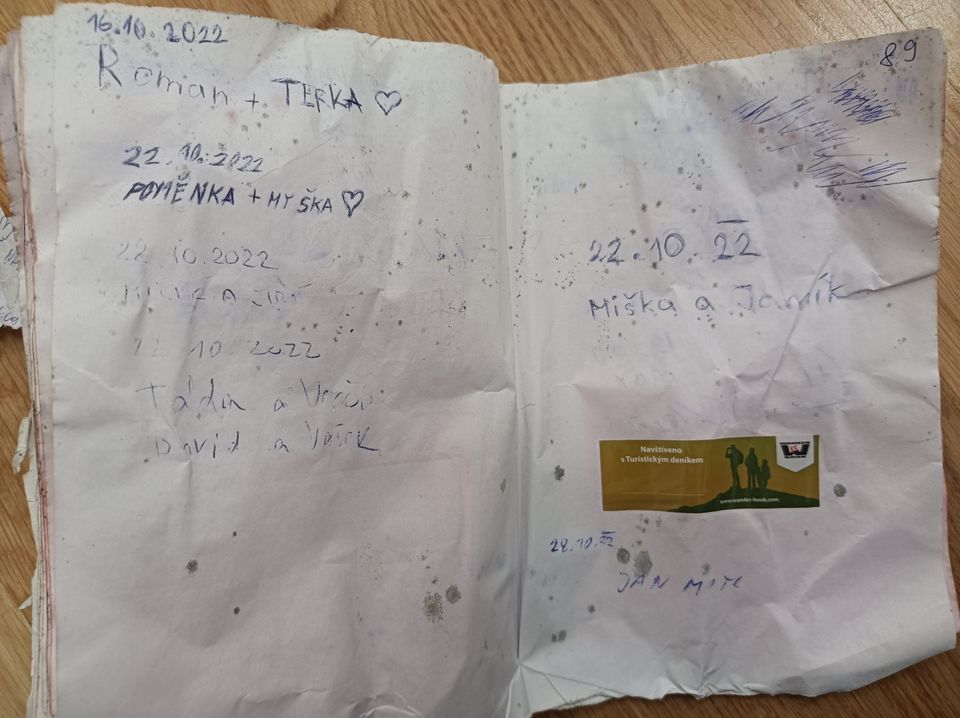 16.10.2022
Roman + TERKA
22.10.2022
POMĚNKA + MYŠKA
22 10.2022
a Jiří
22 10. 2022
a
David a
89
22.10.22
Miška a Janík
Navštíveno
s Turistickým deníkem
www.wander-book.com
28.10.22
JAN